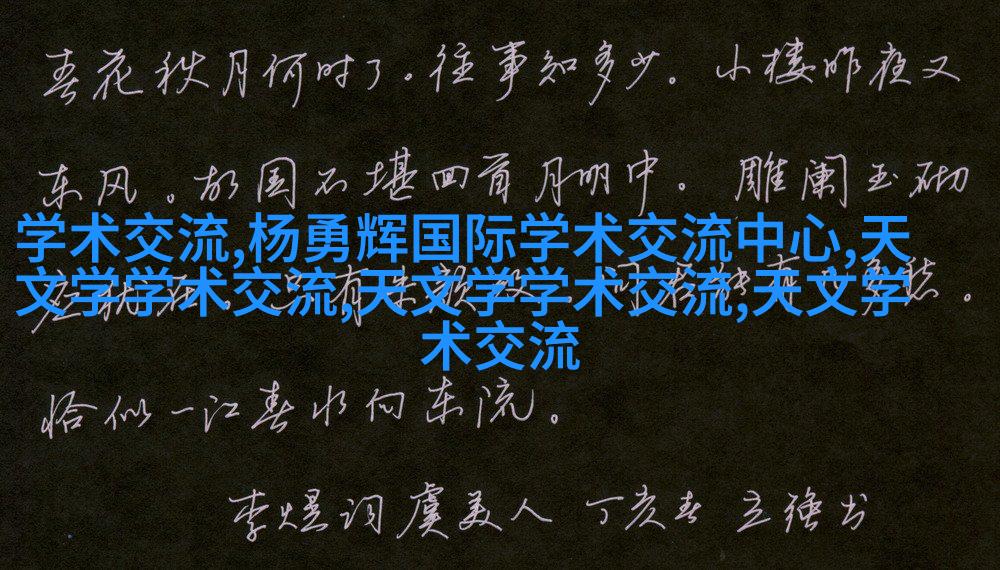 春花秋月何时了。往事知多少。小楼昨夜又
东风。故国不堪回首月明中。雕阑玉砌
学术交流,杨勇辉国际学术交流中心,天
文学学术交流,天文学学术交流,天文学
术交流
恰似一江春水向东流。
李煜词虞美人 丁亥春 立强书